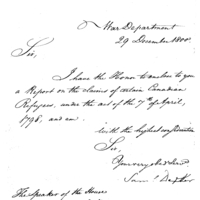 War Department
29 December 1800.
Sir,
I have the Honor to enclose to you
a Report on the claims of certain Canadian
Refugees, under the act of the 7th of April,
1798, and am
with the highest consideration
Sir,
Your very obed. Serv.
Sam. Dexter
The Speaker of the House